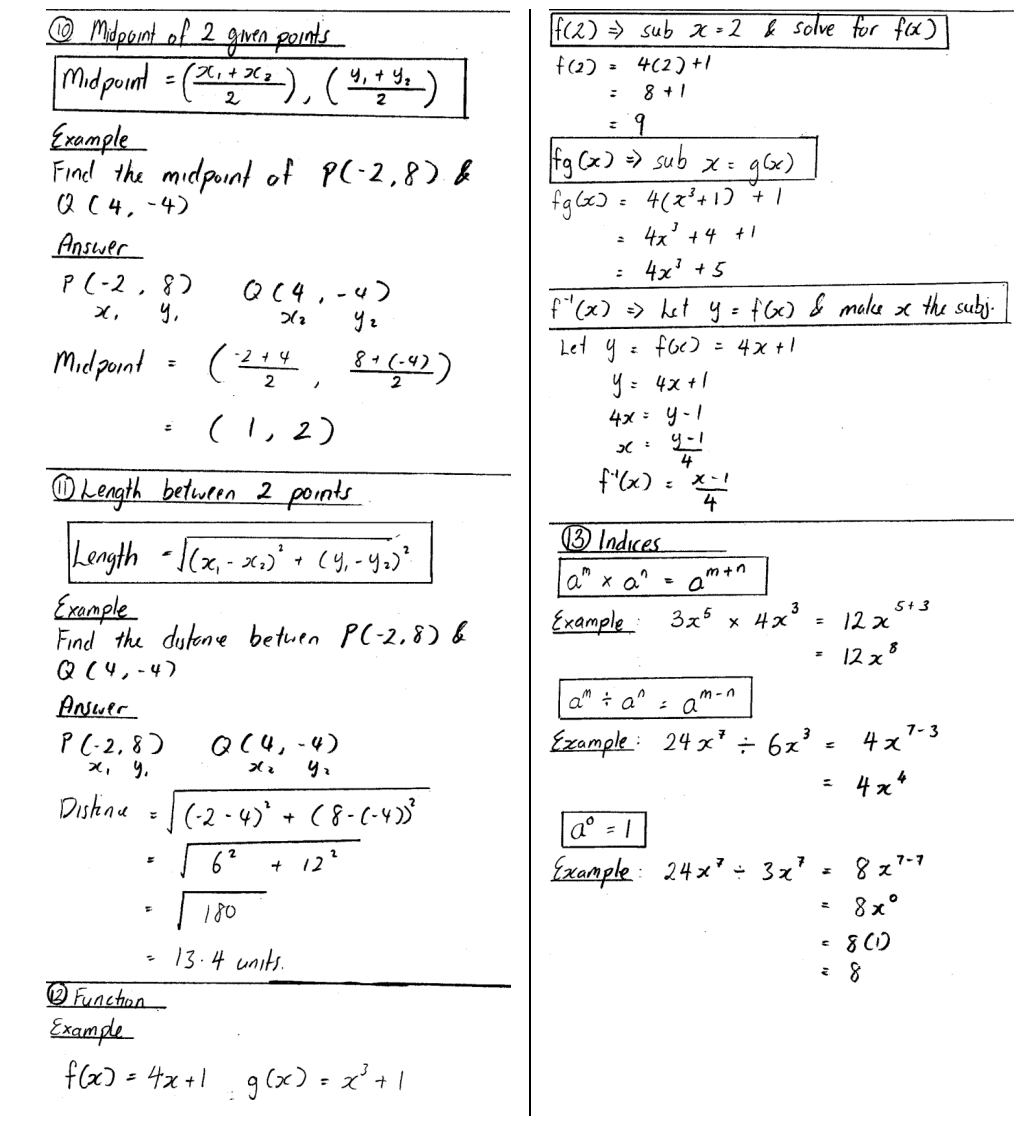 ⑩ Midpoint of 2 given points
Midpoint = ((x₁ + x₂)/2), ((y₁ + y₂)/2)
Example
Find the midpoint of P(-2, 8) &
Q (4, -4)
Answer
P (-2, 8) Q (4, -4)
x₁ y₁ x₂ y₂
Midpoint = ((-2 + 4)/2, (8 + (-4))/2)
= (1, 2)
⑪ Length between 2 points
Length = √((x₁ - x₂)² + (y₁ - y₂)²)
Example
Find the distane betwen P(-2, 8) &
Q (4, -4)
Answer
P (-2, 8) Q (4, -4)
x₁ y₁ x₂ y₂
Distane = √((-2 - 4)² + (8 - (-4))²)
= √(6² + 12²)
= √180
= 13.4 units.
⑫ Function
Example
f(x) = 4x + 1 g(x) = x³ + 1
f(2) ⇒ sub x = 2 & solve for f(x)
f(2) = 4(2) + 1
= 8 + 1
= 9
fg(x) ⇒ sub x = g(x)
fg(x) = 4(x³ + 1) + 1
= 4x³ + 4 + 1
= 4x³ + 5
f⁻¹(x) ⇒ Let y = f(x) & make x the subj.
Let y = f(x) = 4x + 1
y = 4x + 1
4x = y - 1
x = (y - 1)/4
f⁻¹(x) = (x - 1)/4
⑬ Indices
aᵐ × aⁿ = aᵐ⁺ⁿ
Example: 3x⁵ × 4x³ = 12x⁵⁺³
= 12x⁸
aᵐ ÷ aⁿ = aᵐ⁻ⁿ
Example: 24x⁷ ÷ 6x³ = 4x⁷⁻³
= 4x⁴
a⁰ = 1
Example: 24x⁷ ÷ 3x⁷ = 8x⁷⁻⁷
= 8x⁰
= 8(1)
= 8